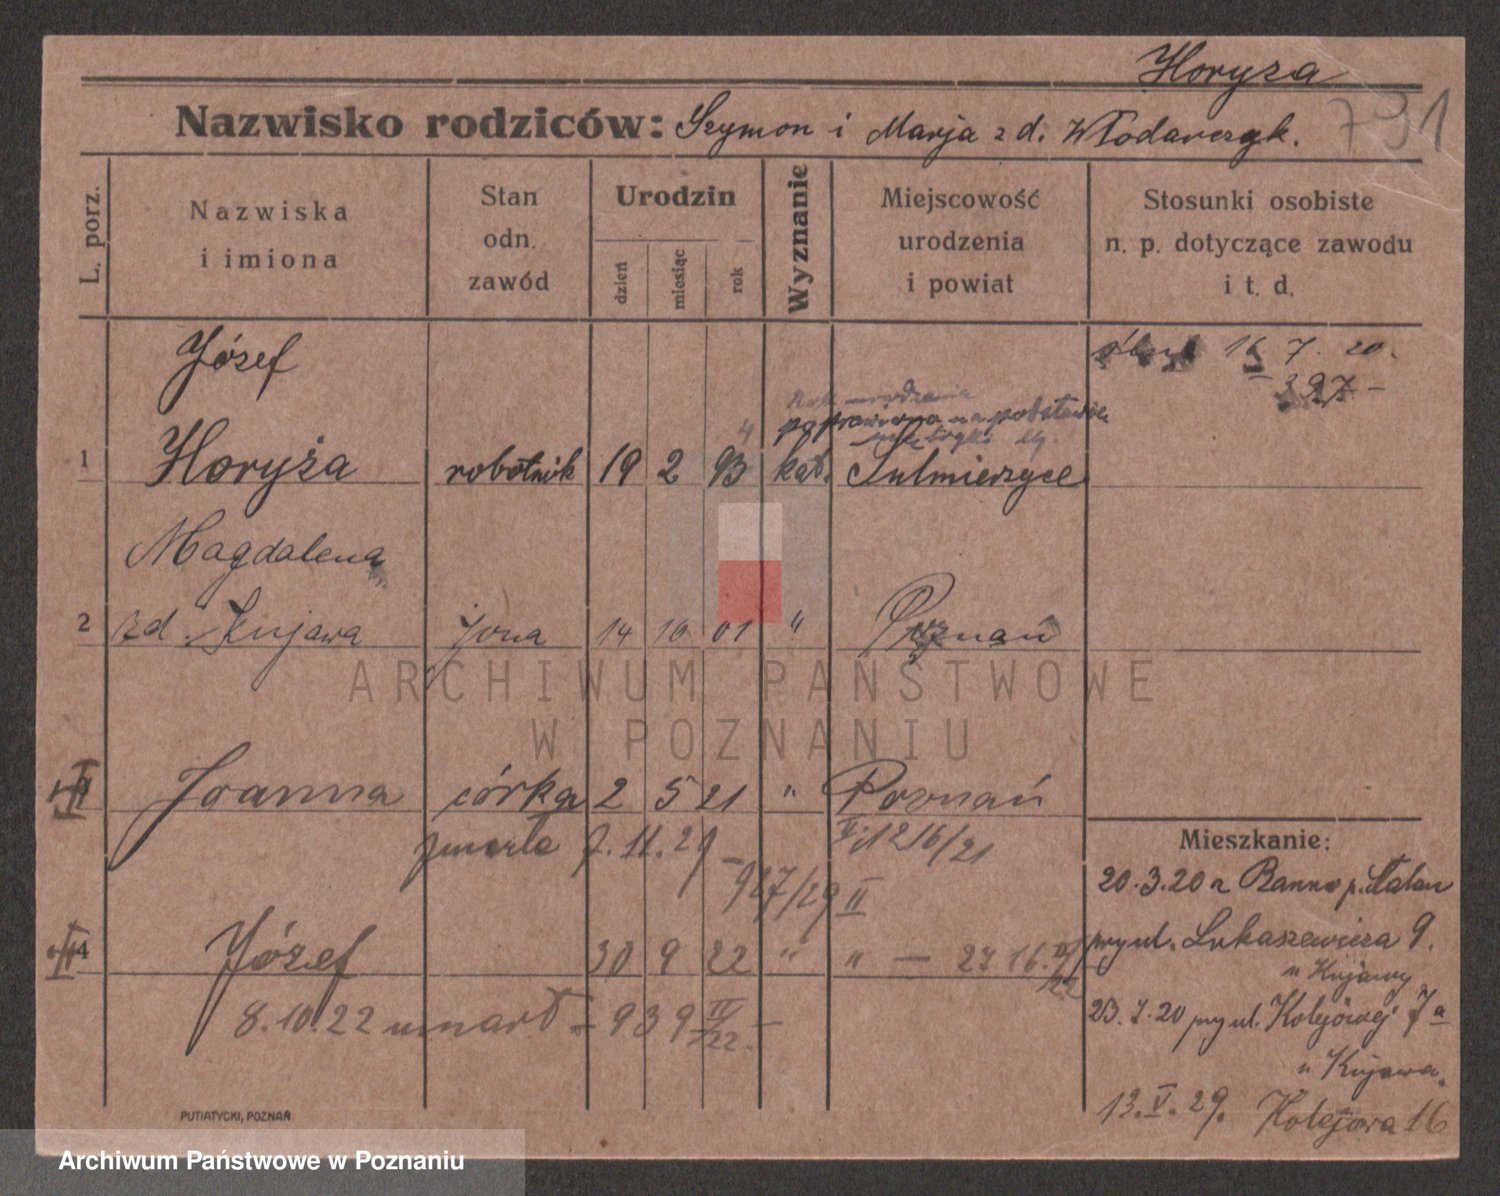 Horyza
791
Nazwisko rodziców: Szymon i Marja z d. Włodarczyk.
L. porz.
Nazwiska
i imiona
Stan
odn.
zawód
Urodzin
dzień
miesiąc
rok
Wyznanie
Miejscowość
urodzenia
i powiat
Stosunki osobiste
n. p. dotyczące zawodu
i t. d.
16 7. 20.
397 –
Józef
Rok urodzenia
poprawiono na podstawie
metryki
4
1 Horyża robotnik 19 2 93 kat. Sulmierzyce
Magdalena
2 zd. Kujawa żona 14 10 01 " Poznań
ARCHIWUM PAŃSTWOWE
W POZNANIU
Joanna córka 2 5 21 " Poznań
zmarła 7.11.29 V; 1216/21
– 927/29 II
4 Józef 30 9 22 " " — 2716
8.10.22 umarł – 939 IV/22. –
Mieszkanie:
20.3.20 p.
przy ul. Łukaszewicza 9.
u Kujawy
23.7.20 przy ul. Kolejowej 7a
u Kujawa.
13.V.29. Kolejowa 16
PUTIATYCKI, POZNAŃ
Archiwum Państwowe w Poznaniu